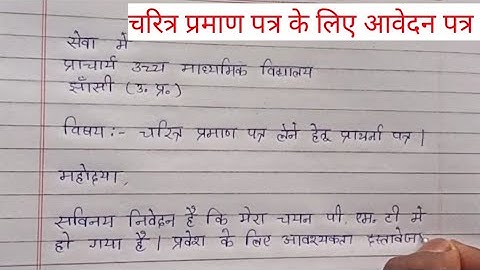 चरित्र प्रमाण पत्र के लिए आवेदन पत्र
सेवा में
प्राचार्य उच्च माध्यमिक विद्यालय
झाँसी (उ. प्र.)
विषय :- चरित्र प्रमाण पत्र लेने हेतू प्रार्थना पत्र |
महोदया,
सविनय निवेदन है कि मेरा चयन पी. एम. टी में
हो गया है | प्रवेश के लिए आवश्यकता दस्तावेजो